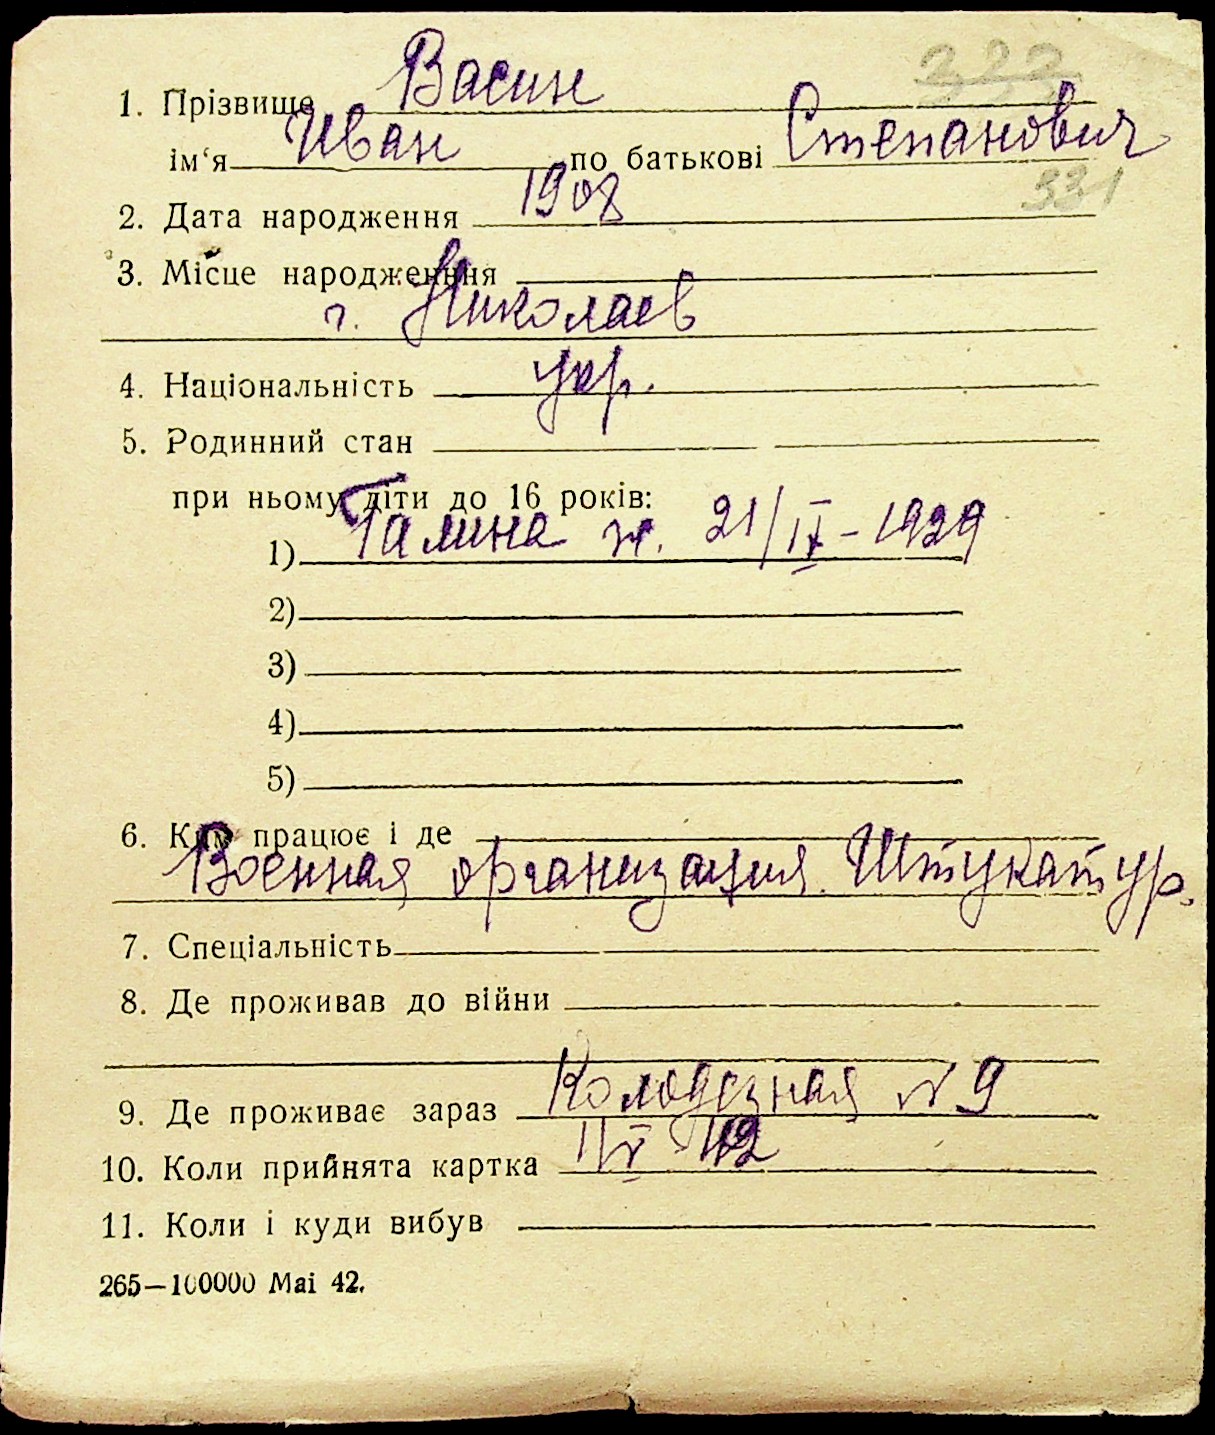 322
1. Прізвище Васин
ім‘я Иван по батькові Степанович
331
2. Дата народження 1908
3. Місце народження
г. Николаев
4. Національність укр.
5. Родинний стан
при ньому діти до 16 років:
1) Галина ж. 21/IX - 1929
2)
3)
4)
5)
6. Ким працює і де
Военная организация. Штукатур.
7. Спеціальність
8. Де проживав до війни
9. Де проживає зараз Колодезная № 9
10. Коли прийнята картка 1/V 42
11. Коли і куди вибув
265—100000 Mai 42.